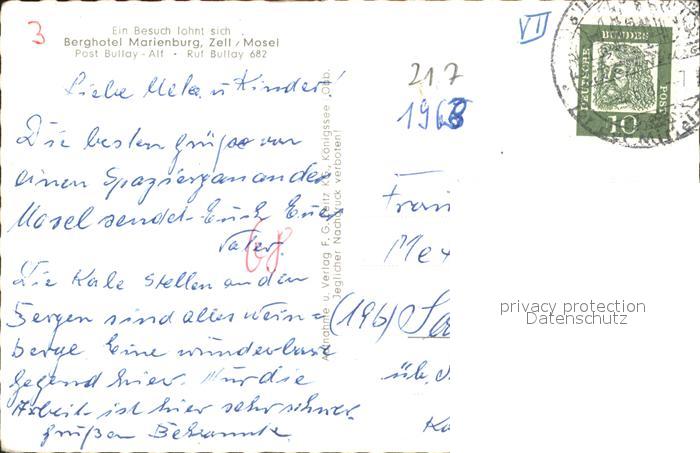 3
Ein Besuch lohnt sich
Berghotel Marienburg, Zell / Mosel
Post Bullay-Alf · Ruf Bullay 682
VII
DEUTSCHE BUNDES POST
10
21.7
1963
Liebe Meta u Kinder!
Die besten Grüße von
einen Spaziergan an der
Mosel sendet Euch Euer
Vater.
68
Die Kale Stellen an den
Bergen sind alles Wein=
berge. Eine wunderbare
Gegend hier. Nur die
Arbeit ist hier sehr schwer.
Grüßen Bekannte
Aufnahme u. Verlag F. G. Zeitz KG., Königssee / Obb.
Jeglicher Nachdruck verboten!
Frau
Met
(196)
üb. d.
privacy protection
Datenschutz